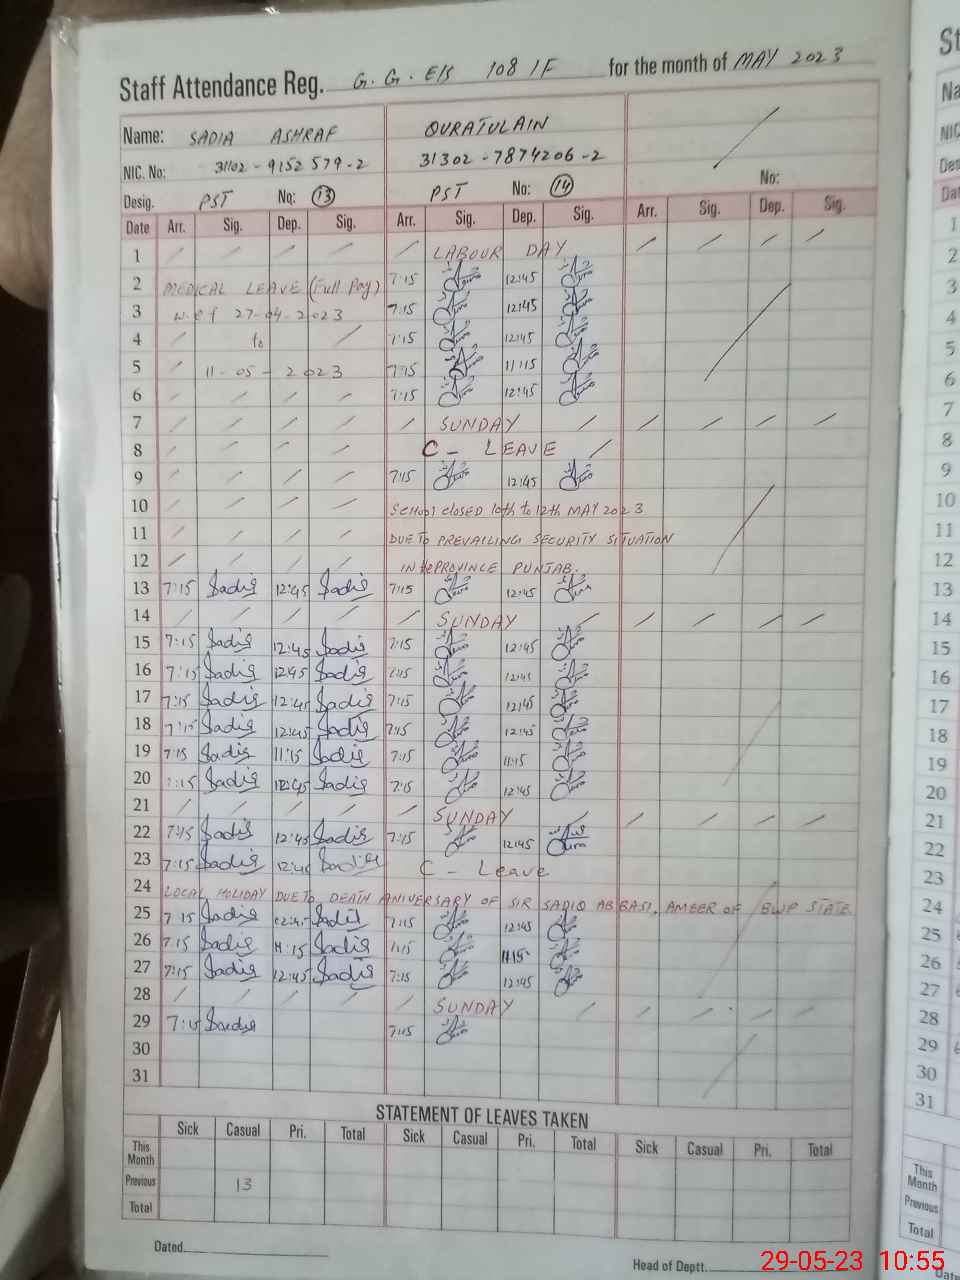 Staff Attendance Reg. G. G. E/S 108 1F for the month of MAY 2023
Name: SADIA ASHRAF QURATULAIN
NIC. No: 31102-9152579-2 31302-7874206-2
Desig. PST No: 13 PST No: 14 No:
Date Arr. Sig. Dep. Sig. Arr. Sig. Dep. Sig. Arr. Sig. Dep. Sig.
1 LABOUR DAY
2 MEDICAL LEAVE (Full Pay) 7:15 12:45
3 w.e.f 27-04-2023 7:15 12:45
4 to 7:15 12:45
5 11-05-2023 7:15 11:15
6 7:15 12:45
7 SUNDAY
8 C - LEAVE
9 7:15 12:45
10 SCHOOL CLOSED 10th to 12th MAY 2023
11 DUE TO PREVAILING SECURITY SITUATION
12 IN the PROVINCE PUNJAB.
13 7:15 Sadia 12:45 Sadia 7:15 12:45
14 SUNDAY
15 7:15 Sadia 12:45 Sadia 7:15 12:45
16 7:15 Sadia 12:45 Sadia 7:15 12:45
17 7:15 Sadia 12:45 Sadia 7:15 12:45
18 7:15 Sadia 12:45 Sadia 7:15 12:45
19 7:15 Sadia 11:15 Sadia 7:15 11:15
20 7:15 Sadia 12:45 Sadia 7:15 12:45
21 SUNDAY
22 7:15 Sadia 12:45 Sadia 7:15 12:45
23 7:15 Sadia 12:45 Sadia C - Leave
24 LOCAL HOLIDAY DUE TO DEATH ANIVERSARY OF SIR SADIQ ABBASI, AMEER OF BWP STATE
25 7:15 Sadia 12:45 Sadia 7:15 12:45
26 7:15 Sadia 11:15 Sadia 7:15 11:15
27 7:15 Sadia 12:45 Sadia 7:15 12:45
28 SUNDAY
29 7:15 Sadia 7:15
30
31
STATEMENT OF LEAVES TAKEN
Sick Casual Pri. Total Sick Casual Pri. Total Sick Casual Pri. Total
This Month
Previous 13
Total
Dated
Head of Deptt.
29-05-23 10:55